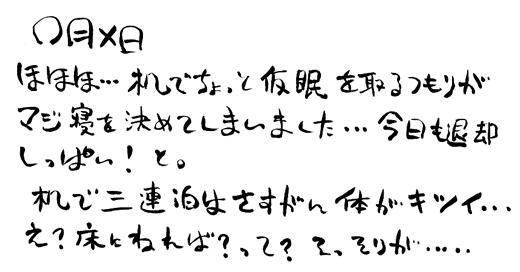 〇月×日
ほほほ…机でちょっと仮眠を取るつもりが
マジ寝を決めてしまいました…今日も退却
しっぱい！と。
机で三連泊はさすがに体がキツイ…
え？床にねれば？って？そっそりが……